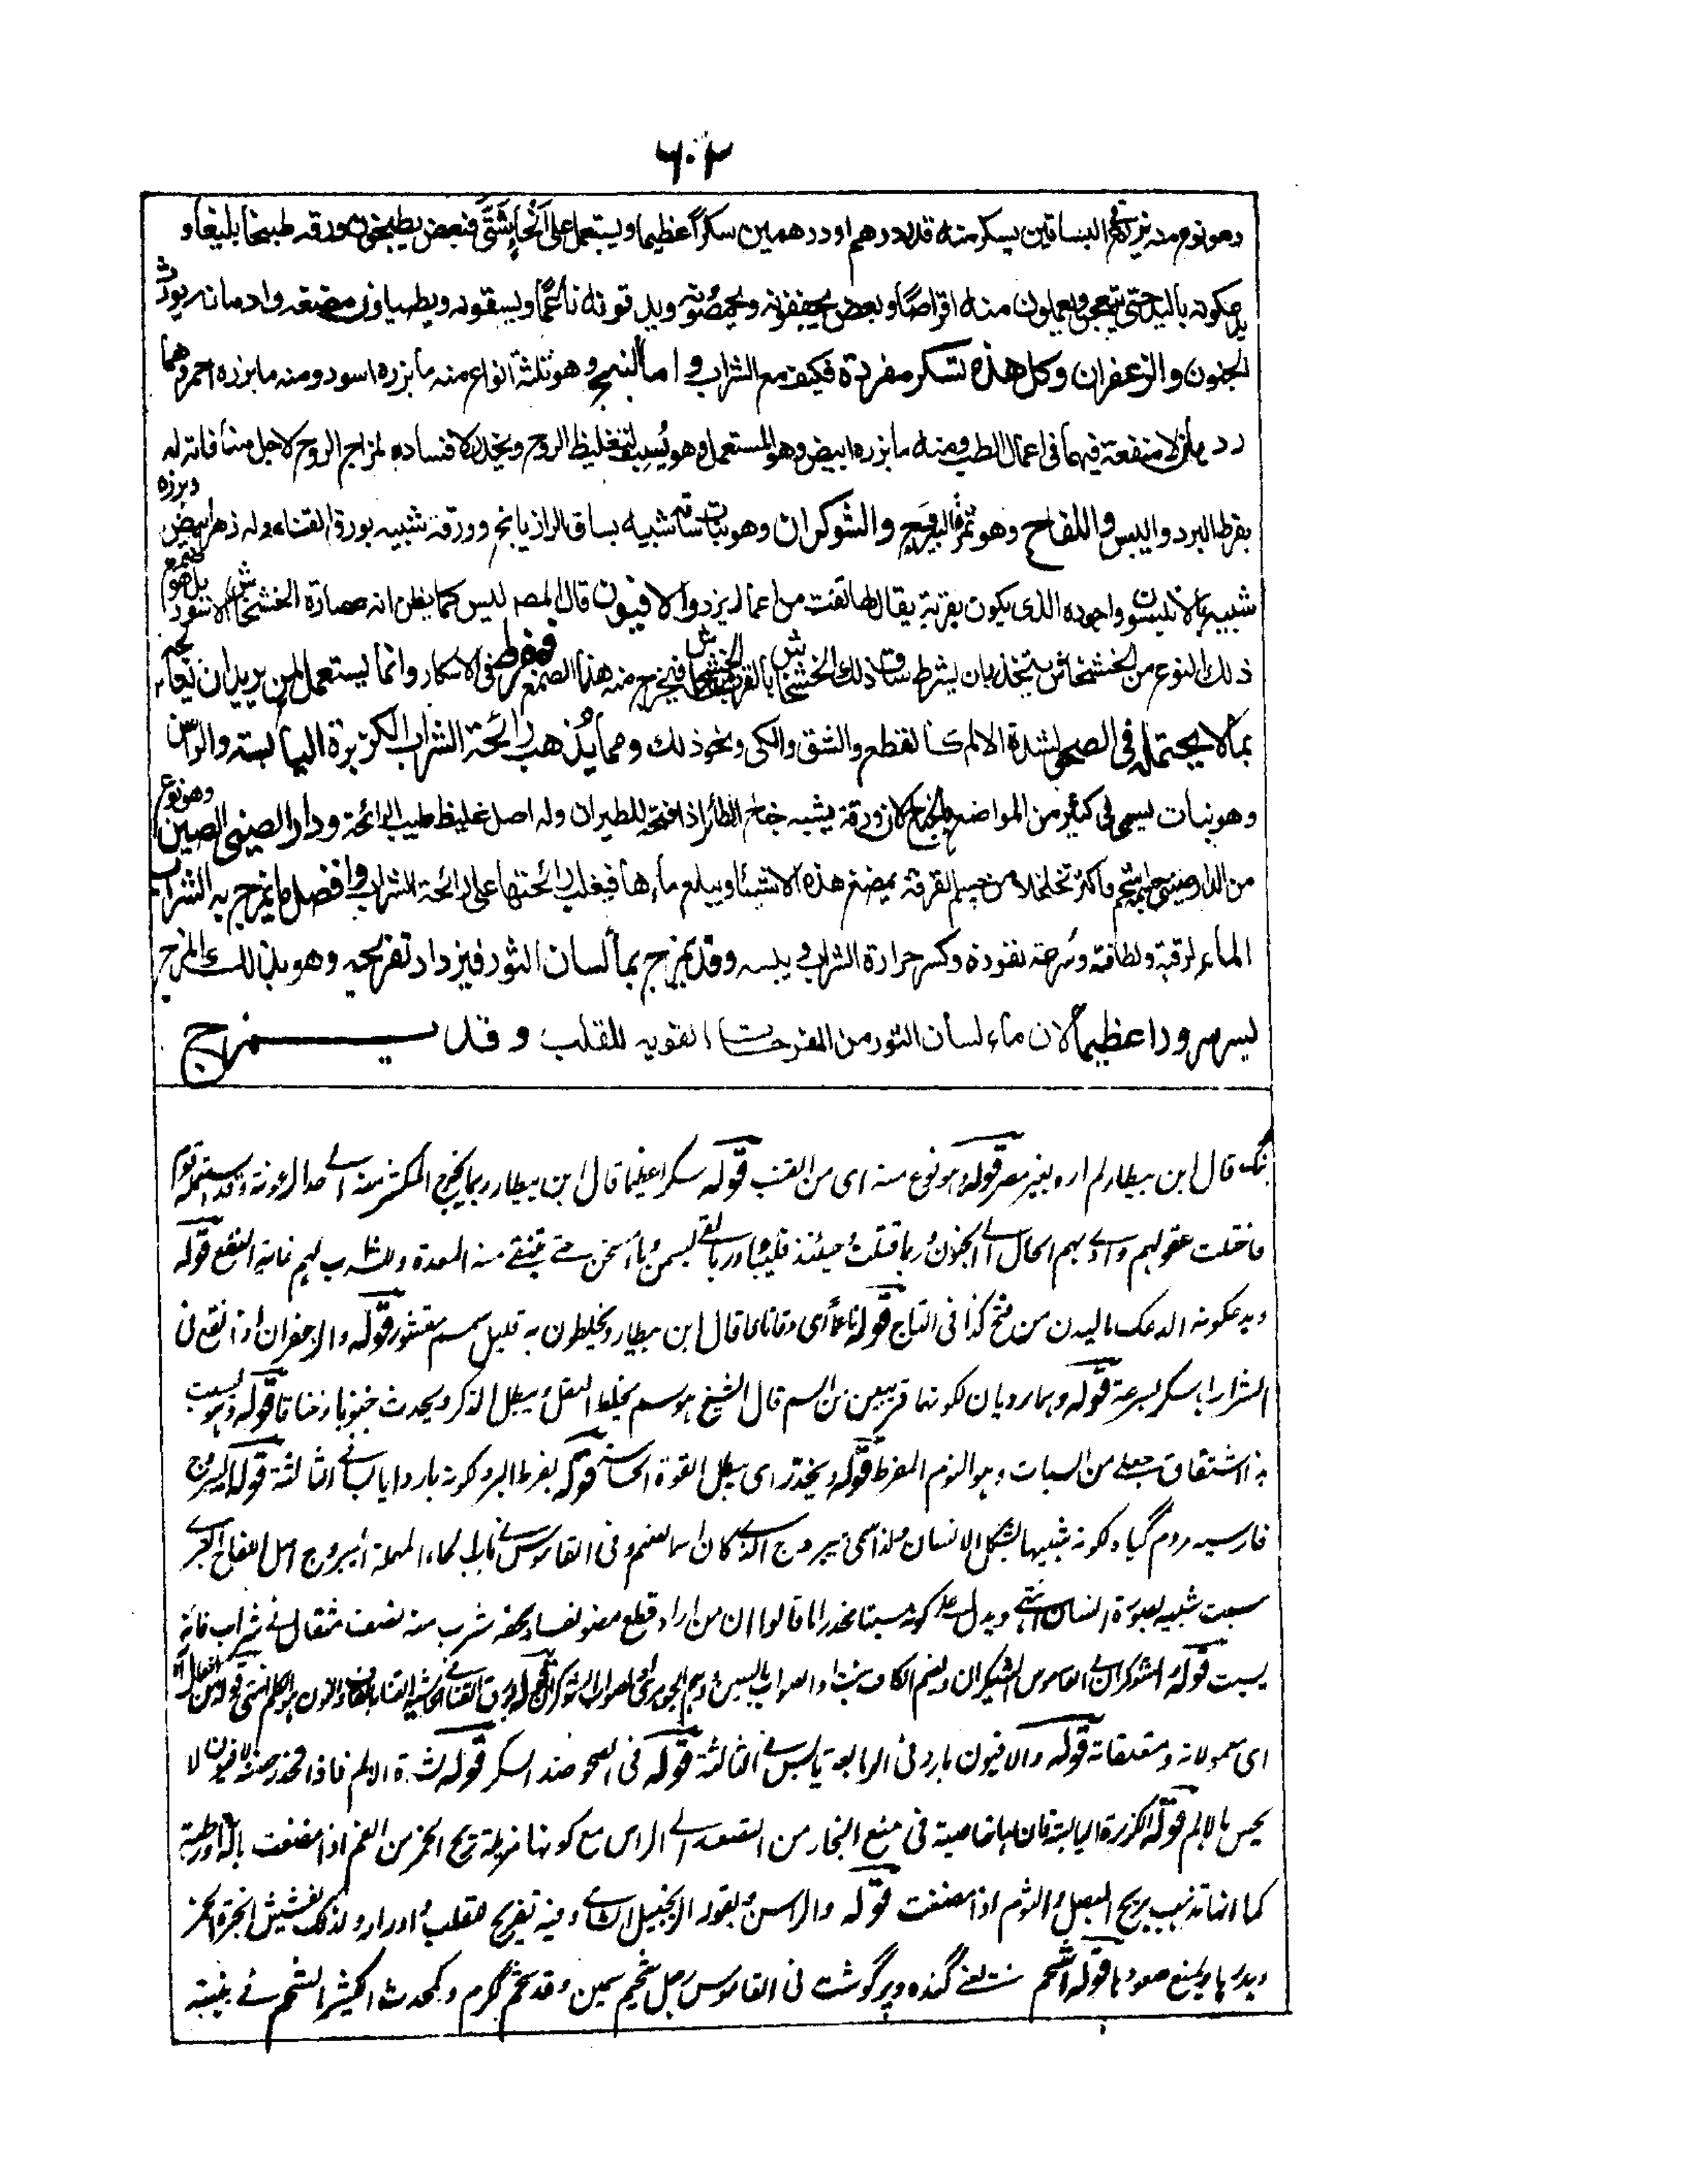 ٦٠٢
وهو نوع منه يزرع في البساتين يسكر منه قدر درهم او درهمين سكراً عظيما ويستعمل على انحاء شتى فبعض يطبخون ورقه طبخا بليغا و
يدعكونه باليد حتى يتعجن ويعملون منه اقراصًا وبعض يجففونه ويحمصونه ويدقونه ناعمًا ويسفونه ويطيلون مضغه وادمانه يورث
الجنون والزعفران وكل هذه تسكر مفردة فكيف مع الشراب واما البنج وهو ثلثة انواع منه ما بزره اسود ومنه ما بزره احمر وهما
رديان لا منفعة فيهما في اعمال الطب ومنه ما بزره ابيض وهو المستعمل وهو يُسبِت لتغليظ الروح ويخدر لافساده لمزاج الروح لاجل منافاته له
بفرط البرد واليبس واللفاح وهو ثمر اليبروج والشوكران وهو نبات ساقه شبيه بساق الرازيانج وورقه شبيه بورق القثاء وله زهر ابيض وبزره
شبيه بالانيسون واجوده الذى يكون بقرية يقال لها تفت من اعمال يزد والافيون قال المصه ليس كما يظن انه عصارة الخشخاش الاسود بل هو صمغ
ذلك النوع من الخشخاش يتخذ بان يشرط ساق ذلك الخشخاش فيخرج منه هذا الصمغ مفرط في الاسكار وانما يستعمل لمن يريد ان يعالجه
بما لا يحتمله في الصحو لشدة الالم كالقطع والشق والكى ونحو ذلك ومما يُذهب رائحة الشراب الكزبرة اليابسة والراسن
وهو نبات يسمى في كثير من المواضع بالجناح لان ورقه يشبه جناح الطائر اذا فتحه للطيران وله اصل غليظ طيب الرائحة ودار الصيني الصين وهو نوع
من الدارصيني جسمه اشحم واكثر تخلخلا من جسم القرفة يمضغ هذه الاشياء ويبلع ماءها فيغلب رائحتها على رائحة الشراب وافضل ما يمزج به الشراب
الماء لرقته ولطافته وسرعة نفوذه وكسر حرارة الشراب ويبسه وقد يمزج بماء لسان الثور فيزداد تفريحه وهو بذلك المزج
ليسر سرورا عظيما لان ماء لسان الثور من المفرحات المقوية للقلب وقد يمزج
بنگ قال ابن بيطار لم اره بغير مصر قوله وهو نوع منه اى من القنب قوله سكرا عظيما قال ابن بيطار ربما يخرج المكثر منه الى حد الرعونة وقد استعمله قوم
فاختلت عقولهم وادى بهم الحال الى الجنون وربما قتلت وحينئذ فليبادر بالقئ بسمن وماء سخن حتى تنقى منه المعدة وللشرب لهم غاية النفع قوله
ويدعكونه الدعك ماليدن من فتح كذا في التاج قوله ناعما اى دقا ناعما قال ابن بيطار ويخلطون به قليل سمسم مقشور قوله والزعفران اذا نقع في
الشراب اسكر بسرعة قوله وهما رديان لكونهما قريبين من السم قال الشيخ هو سم يخلط العقل ويبطل الذكر ويحدث جنونا وخناقا قوله وهو يسبت
هذا اشتقاق جعلى من السبات وهو النوم المفرط قوله ويخدر اى يبطل القوة الحاسة قوله بفرط البرد لكونه باردا يابسا في الثالثة قوله اليبروج
فارسيه مردم گياه لكونه شبيها بشكل الانسان فلذا سمى بيبروج الذى كان اسما لصنم وفى القاموس في باب الحاء المهملة اليبروح اصل اللفاح البرى
سبعت شبيه بصورة الانسان انتهى ويدل على كونه مسبتا مخدرا ما قالوا ان من اراد قطع عضو لفساد لحقه شرب منه نصف مثقال في شراب فانه
يسبت قوله الشوكران في القاموس الشيكران وبضم الكاف نبت او الصواب بالسين
اى معمولاته ومتعلقاته قوله والافيون بارد في الرابعة يابس في الثالثة قوله في الصحو ضد السكر قوله لشدة الالم فاذا تخدر حسه بالافيون لا
يحس بالالم قوله الكزبرة اليابسة فان لها خاصية في منع البخار من التصعد الى الراس مع كونها مزيلة لريح الخمر من الفم اذا مضغت يابسة او رطبة
كما انها تذهب بريح البصل والثوم اذا مضغت قوله والراسن ويقوله الزنجبيل الشامي وفيه تفريح للقلب وادرار ولذلك يفشش ابخرة الخمر
ويدرها ويمنع صعودها قوله اشحم شحم يعنى گنده وپر گوشت في القاموس رجل شحيم سمين وقد شحم ككرم وكمحدث الكثير الشحم في بيته